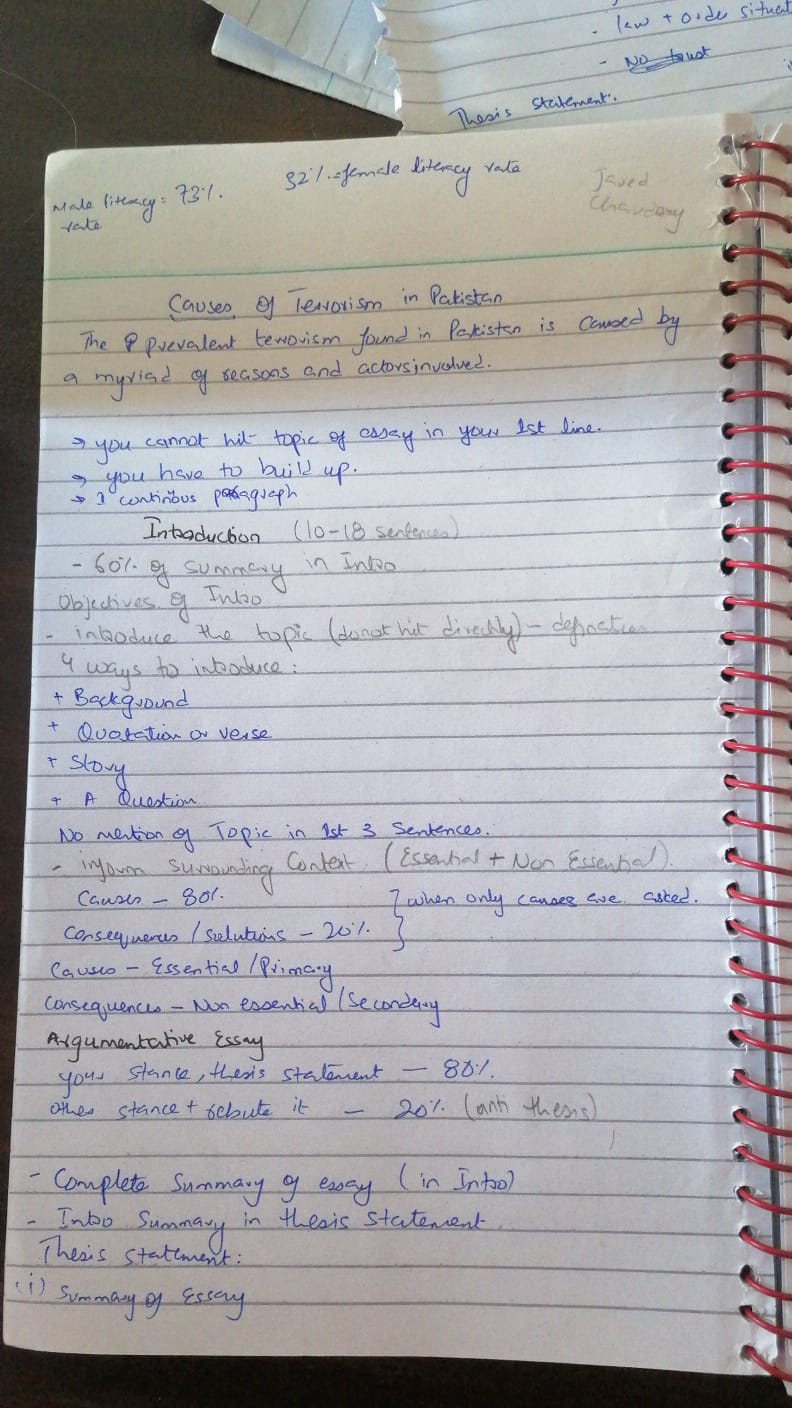 - law + order situat
- No trust
Thesis statement.
Male literacy = 73%. 32% = female literacy rate
rate
Javed
Chaudary
Causes of Terrorism in Pakistan
The prevalent terrorism found in Pakistan is caused by
a myriad of reasons and actors involved.
→ you cannot hit topic of essay in your 1st line.
→ you have to build up.
→ 1 continous paragraph
Introduction (10-18 sentences)
- 60% of summary in Intro
Objectives of Intro
- introduce the topic (donot hit directly) -
4 ways to introduce:
+ Background
+ Quotation or verse
+ Story
+ A Question
No mention of Topic in 1st 3 Sentences.
- inform surrounding Context. (Essential + Non Essential).
Causes - 80%. } when only causes are asked.
Consequences / solutions - 20%.
Causes - Essential / Primary
Consequences - Non essential / Secondary
Argumentative Essay
your stance, thesis statement - 80%.
other stance + rebute it - 20%. (anti thesis)
- Complete Summary of essay (in Intro)
- Intro Summary in thesis statement.
Thesis statement:
(i) Summary of Essay